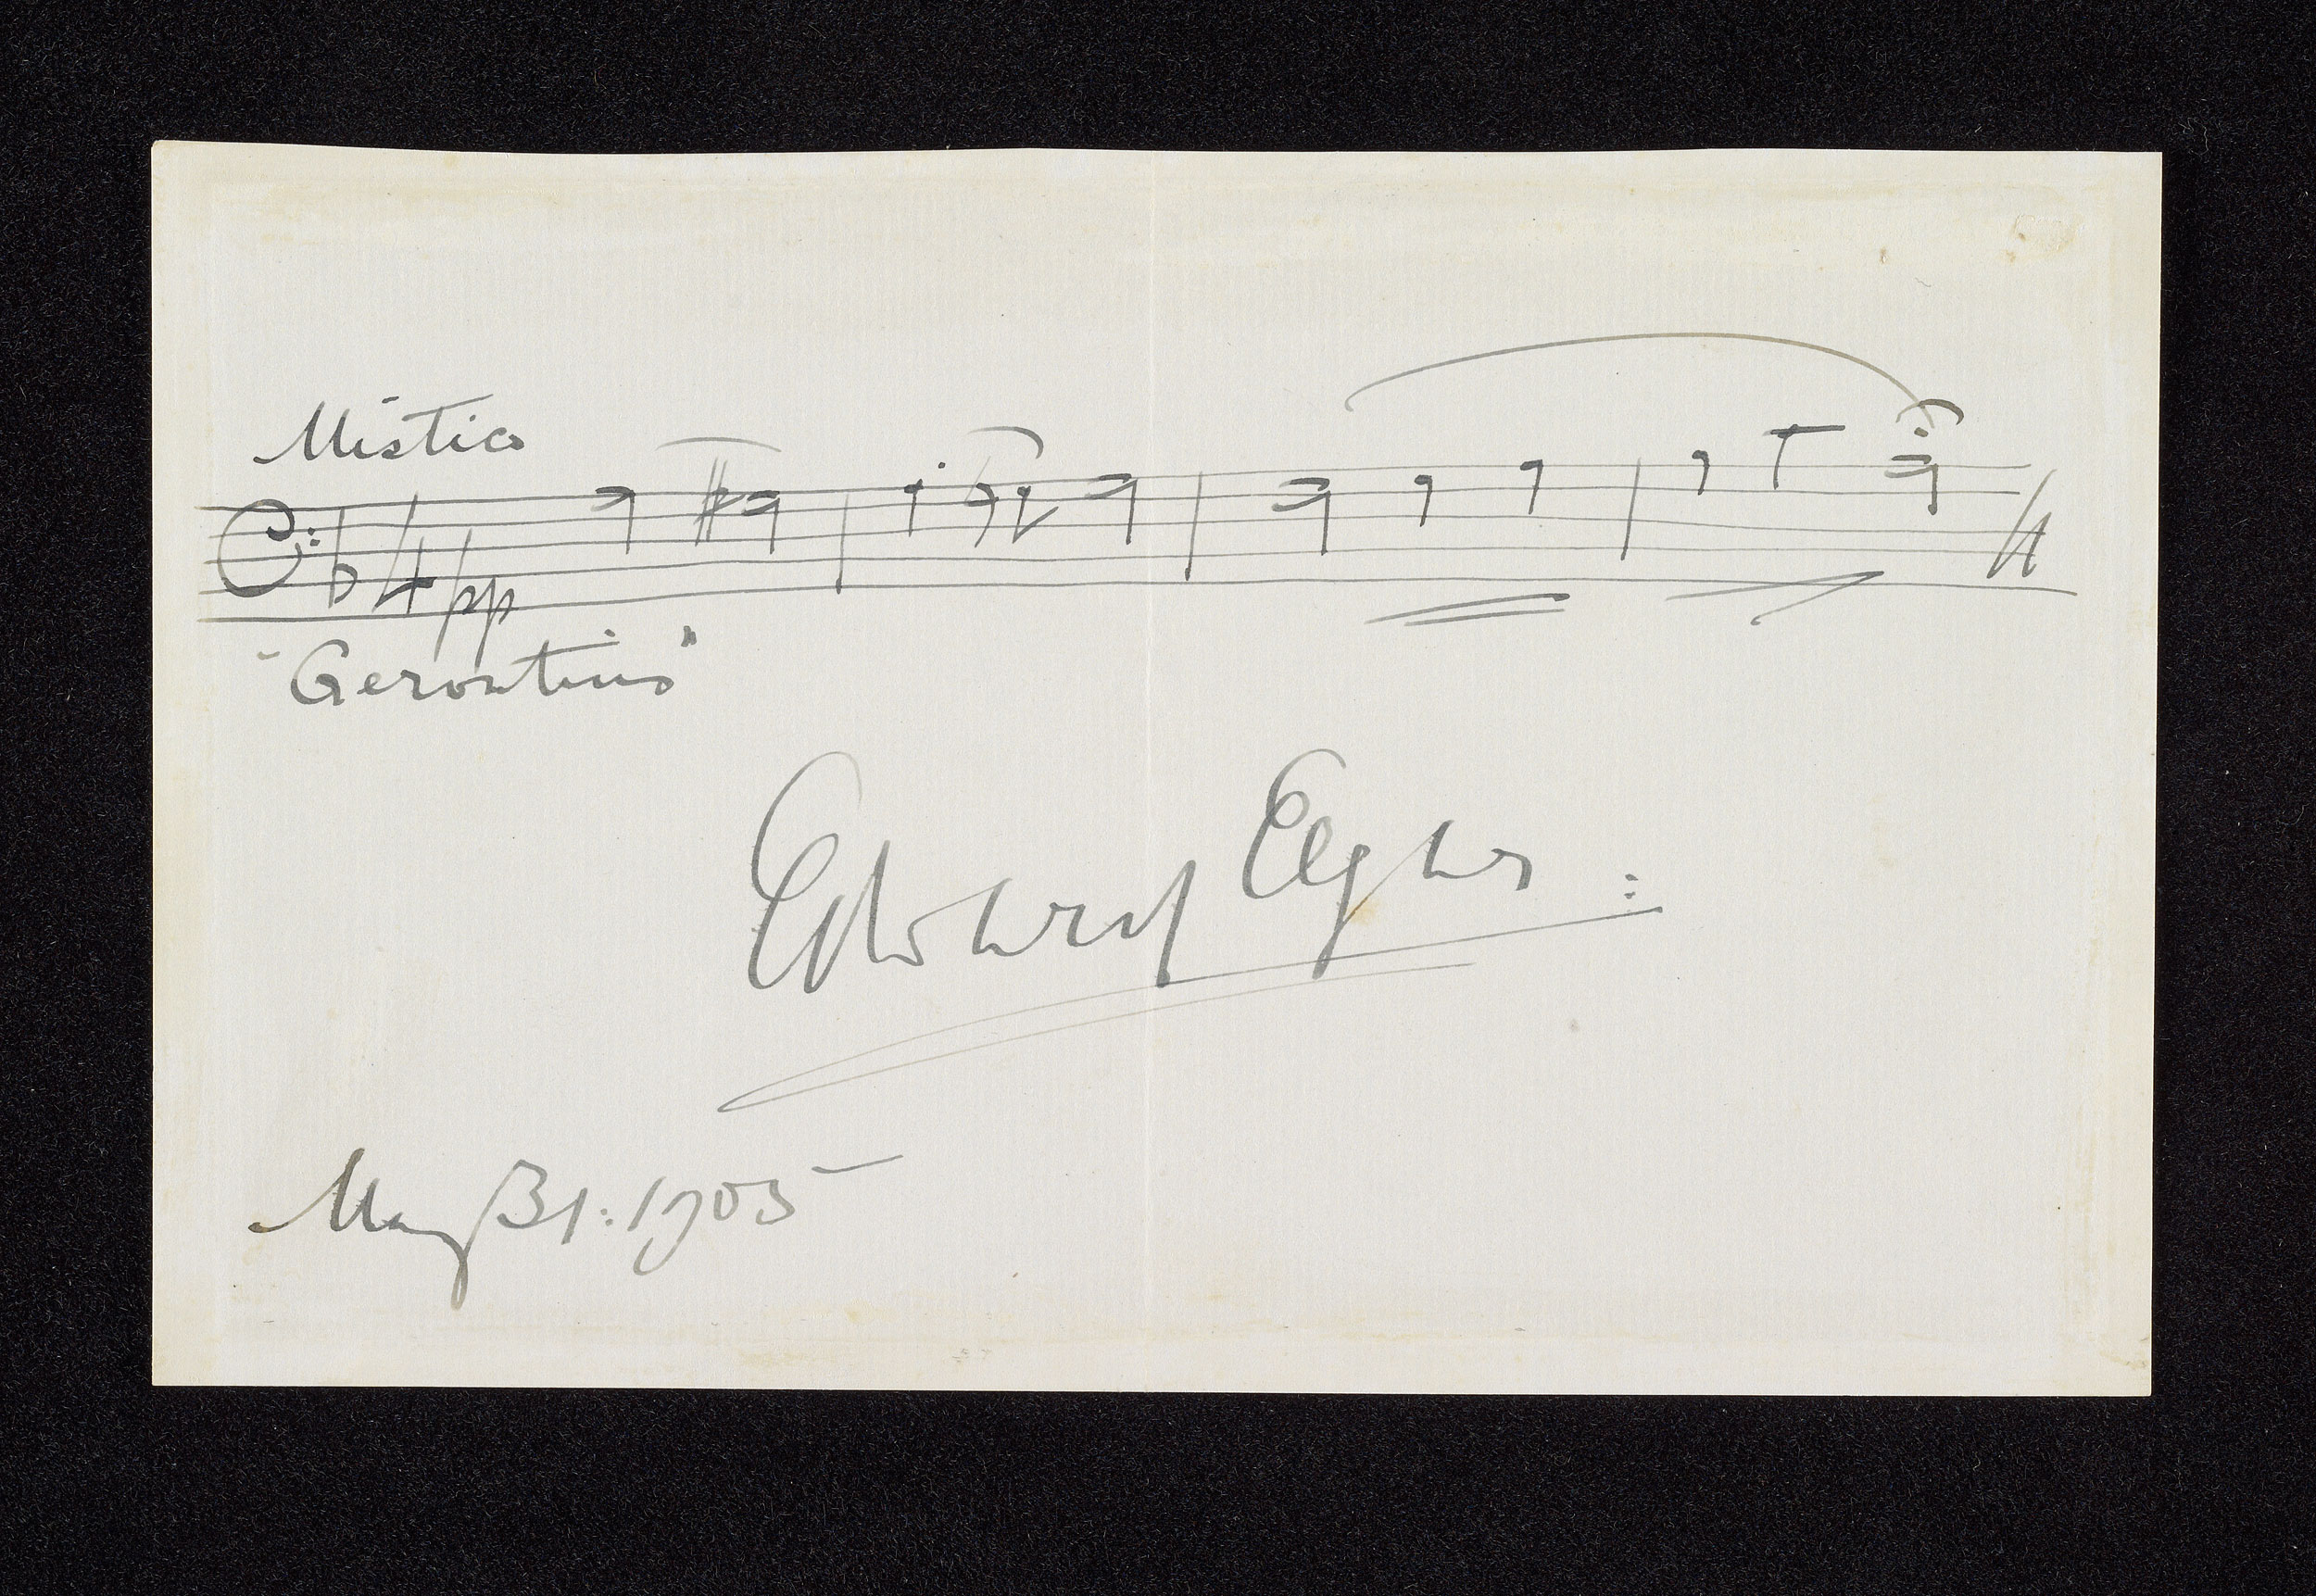 Mistico
4 pp
"Gerontius"
Edward Elgar :
May 31 : 1905